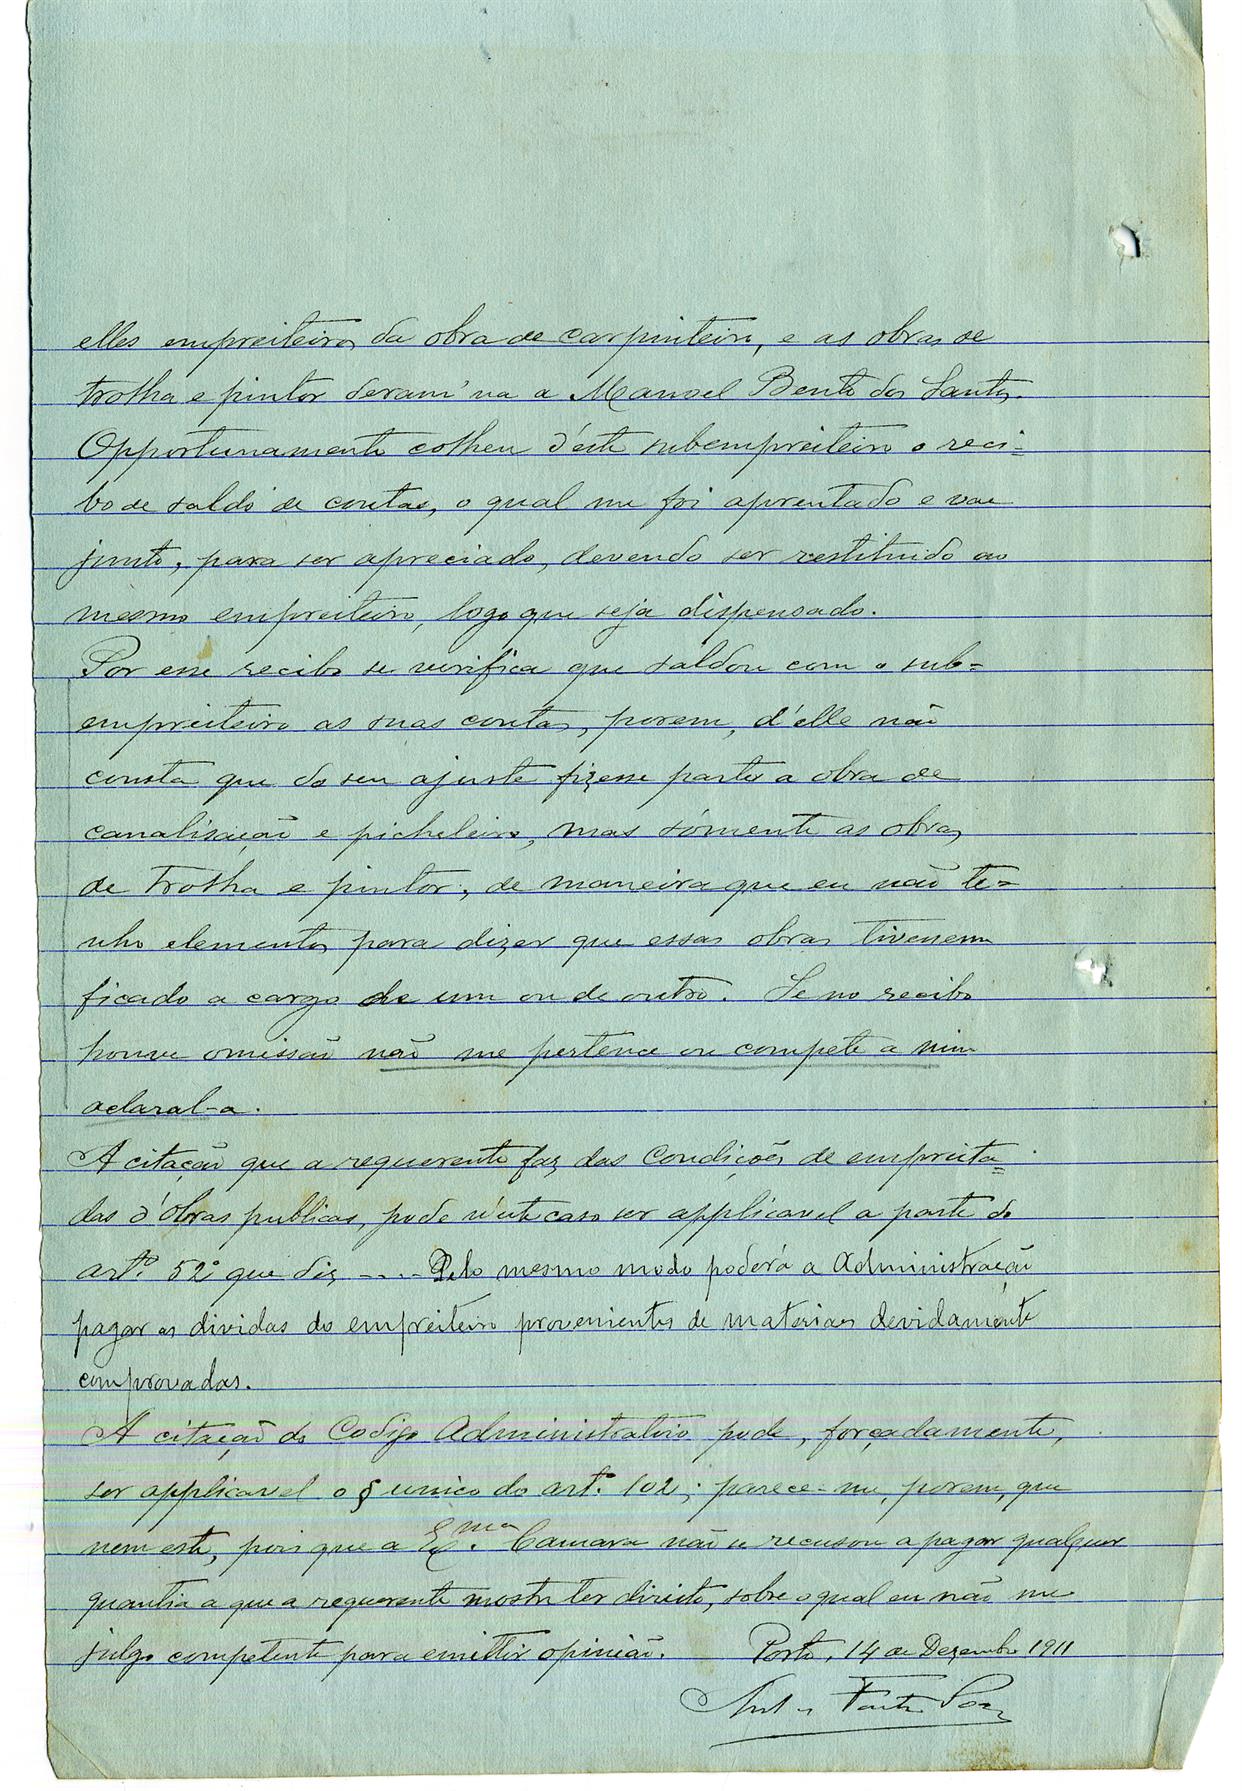 elles empreiteiros da obra de carpinteiro, e as obras de
trolha e pintor deram'na a Manoel Bento dos Santos.
Opportunamente colheu d'este subempreiteiro o reci-
bo de saldo de contas, o qual me foi aprentado e vae
junto, para ser apreciado, devendo ser restituido ao
mesmo empreiteiro, logo que seja dispensado.
Por esse recibo se verifica que saldou com o sub-
empreiteiro as suas contas, porem, d'elle não
consta que do seu ajuste fizesse parte a obra de
canalisação e picheleiro, mas sómente as obras
de trolha e pintor; de maneira que eu não te-
nho elementos para dizer que essas obras tivessem
ficado a cargo de um ou de outro. Se no recibo
houve omissão não me pertence ou compete a mim
aclaral-a.
A citação que a requerente faz das Condições de empreita-
das d'obras publicas, pode n'este caso ser applicavel a parte do
artº. 52º que diz .... Pelo mesmo modo poderá a Administração
pagar as dividas do empreiteiro provenientes de materiaes devidamente
comprovadas.
A citação do Codigo Administrativo pode, forçadamente,
ser applicavel o § unico do artº. 102; parece-me, porem, que
nem este, pois que a Exma. Camara não se recusou a pagar qualquer
quantia a que a requerente mostre ter direito, sobre o qual eu não me
julgo competente para emittir opinião. Porto, 14 de Dezembro 1911